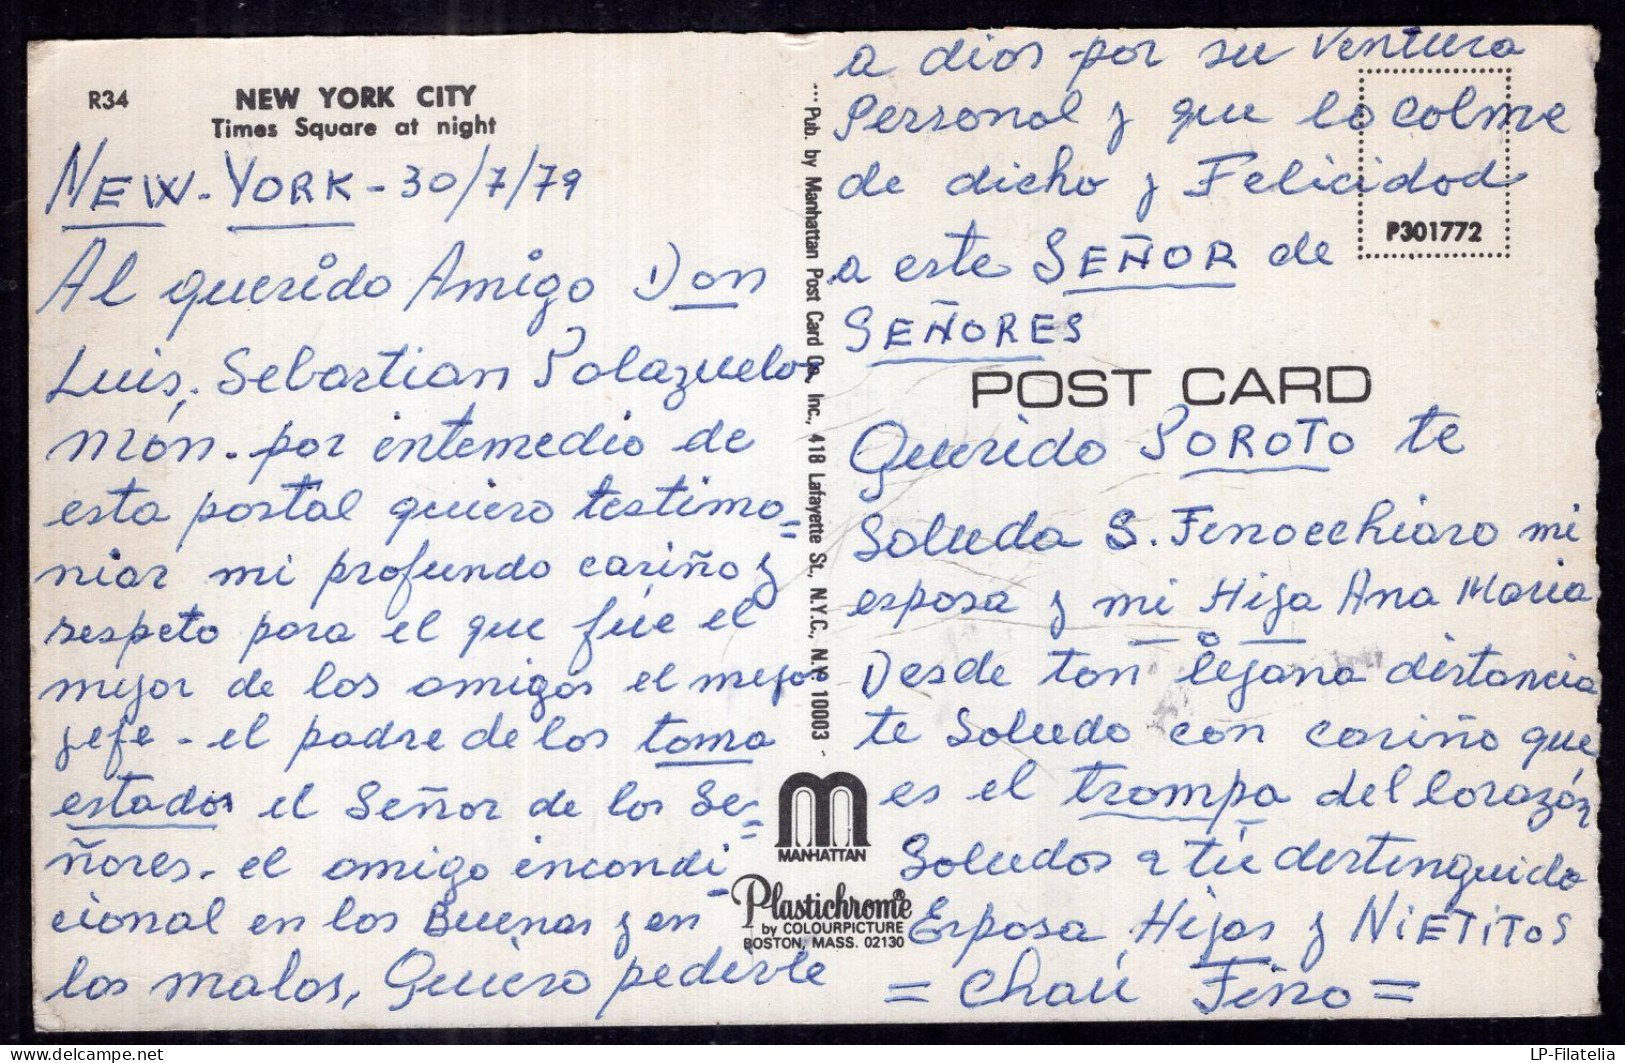 R34
NEW YORK CITY
Times Square at night
NEW-YORK-30/7/79
Al querido Amigo Don
Luis, Sebastian Palazuelo
Món. por intemedio de
esta postal quiero testimo=
niar mi profundo cariño y
respeto para el que fúe el
mejor de los amigos el mejor
jefe - el padre de los toma
estados el Señor de los Se=
ñores. el amigo incondi_
cional en los Buenos y en
los malos, Quiero pedirle
.... Pub. by Manhattan Post Card Co., Inc., 418 Lafayette St., N.Y.C., N.Y. 10003 -
MANHATTAN
Plastichrome®
by COLOURPICTURE
BOSTON, MASS. 02130
a dios por su Ventura
Personal y que lo colme
de dicha y Felicidad
P301772
a este SEÑOR de
SEÑORES
POST CARD
Querido POROTO te
Saluda S. Finocchiaro mi
esposa y mi Hija Ana Maria
Desde tan lejana distancia
te saludo con cariño que
es el trompa del Corazón
Saludos a tú distinguida
Esposa, Hijas y NIETITOS
= Chaú Fino =
LP-Filatelia
delcampe.net